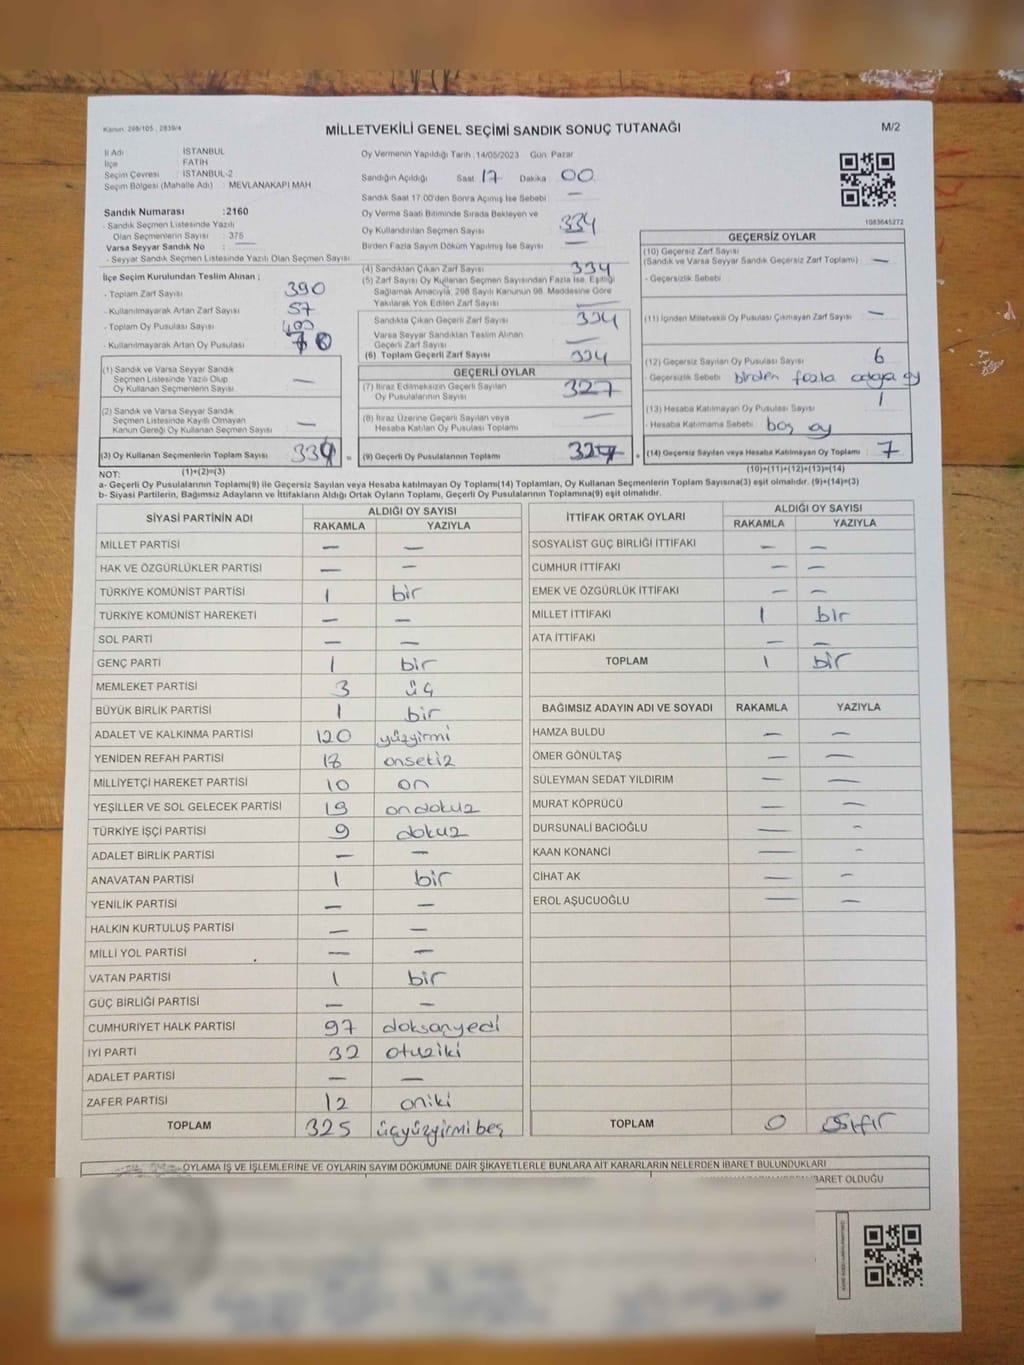 Kanun: 298/105 , 2839/4
MİLLETVEKİLİ GENEL SEÇİMİ SANDIK SONUÇ TUTANAĞI
M/2
İl Adı : İSTANBUL
İlçe : FATİH
Seçim Çevresi : İSTANBUL-2
Seçim Bölgesi (Mahalle Adı) : MEVLANAKAPI MAH
Sandık Numarası :2160
- Sandık Seçmen Listesinde Yazılı
Olan Seçmenlerin Sayısı : 375
Varsa Seyyar Sandık No : —
- Seyyar Sandık Seçmen Listesinde Yazılı Olan Seçmen Sayısı :
İlçe Seçim Kurulundan Teslim Alınan ;
- Toplam Zarf Sayısı : 390
- Kullanılmayarak Artan Zarf Sayısı : 57
- Toplam Oy Pusulası Sayısı :
- Kullanılmayarak Artan Oy Pusulası :
(1) Sandık ve Varsa Seyyar Sandık
Seçmen Listesinde Yazılı Olup
Oy Kullanan Seçmenlerin Sayısı : —
(2) Sandık ve Varsa Seyyar Sandık
Seçmen Listesinde Kayıtlı Olmayan
Kanun Gereği Oy Kullanan Seçmen Sayısı : —
(3) Oy Kullanan Seçmenlerin Toplam Sayısı : 334
(1)+(2)=(3)
Oy Vermenin Yapıldığı Tarih :14/05/2023 Gün Pazar
Sandığın Açıldığı Saat 17 Dakika 00
Sandık Saat 17.00'den Sonra Açılmış İse Sebebi : —
Oy Verme Saati Bitiminde Sırada Bekleyen ve
Oy Kullandırılan Seçmen Sayısı : 334
Birden Fazla Sayım Döküm Yapılmış İse Sayısı : —
(4) Sandıktan Çıkan Zarf Sayısı : 334
(5) Zarf Sayısı Oy Kullanan Seçmen Sayısından Fazla İse, Eşitliği
Sağlamak Amacıyla, 298 Sayılı Kanunun 98. Maddesine Göre
Yakılarak Yok Edilen Zarf Sayısı : —
Sandıkta Çıkan Geçerli Zarf Sayısı : 334
Varsa Seyyar Sandıktan Teslim Alınan
Geçerli Zarf Sayısı : —
(6) Toplam Geçerli Zarf Sayısı : 334
GEÇERLİ OYLAR
(7) İtiraz Edilmeksizin Geçerli Sayılan
Oy Pusulalarının Sayısı : 327
(8) İtiraz Üzerine Geçerli Sayılan veya
Hesaba Katılan Oy Pusulası Toplamı : —
(9) Geçerli Oy Pusulalarının Toplamı : 327
1083645272
GEÇERSİZ OYLAR
(10) Geçersiz Zarf Sayısı
(Sandık ve Varsa Seyyar Sandık Geçersiz Zarf Toplamı) : —
- Geçersizlik Sebebi :
(11) İçinden Milletvekili Oy Pusulası Çıkmayan Zarf Sayısı : —
(12) Geçersiz Sayılan Oy Pusulası Sayısı : 6
- Geçersizlik Sebebi : birden fazla adaya oy
(13) Hesaba Katılmayan Oy Pusulası Sayısı : 1
- Hesaba Katılmama Sebebi : boş oy
(14) Geçersiz Sayılan veya Hesaba Katılmayan Oy Toplamı : 7
(10)+(11)+(12)+(13)=(14)
NOT:
a- Geçerli Oy Pusulalarının Toplamı(9) ile Geçersiz Sayılan veya Hesaba katılmayan Oy Toplamı(14) Toplamları, Oy Kullanan Seçmenlerin Toplam Sayısına(3) eşit olmalıdır. (9)+(14)=(3)
b- Siyasi Partilerin, Bağımsız Adayların ve İttifakların Aldığı Ortak Oyların Toplamı, Geçerli Oy Pusulalarının Toplamına(9) eşit olmalıdır.
SİYASİ PARTİNİN ADI ALDIĞI OY SAYISI
RAKAMLA YAZIYLA
MİLLET PARTİSİ — —
HAK VE ÖZGÜRLÜKLER PARTİSİ — —
TÜRKİYE KOMÜNİST PARTİSİ 1 bir
TÜRKİYE KOMÜNİST HAREKETİ — —
SOL PARTİ — —
GENÇ PARTİ 1 bir
MEMLEKET PARTİSİ 3 üç
BÜYÜK BİRLİK PARTİSİ 1 bir
ADALET VE KALKINMA PARTİSİ 120 yüzyirmi
YENİDEN REFAH PARTİSİ 18 onsekiz
MİLLİYETÇİ HAREKET PARTİSİ 10 on
YEŞİLLER VE SOL GELECEK PARTİSİ 19 ondokuz
TÜRKİYE İŞÇİ PARTİSİ 9 dokuz
ADALET BİRLİK PARTİSİ — —
ANAVATAN PARTİSİ 1 bir
YENİLİK PARTİSİ — —
HALKIN KURTULUŞ PARTİSİ — —
MİLLİ YOL PARTİSİ — —
VATAN PARTİSİ 1 bir
GÜÇ BİRLİĞİ PARTİSİ — —
CUMHURİYET HALK PARTİSİ 97 doksanyedi
İYİ PARTİ 32 otuziki
ADALET PARTİSİ — —
ZAFER PARTİSİ 12 oniki
TOPLAM 325 üçyüzyirmibeş
İTTİFAK ORTAK OYLARI ALDIĞI OY SAYISI
RAKAMLA YAZIYLA
SOSYALİST GÜÇ BİRLİĞİ İTTİFAKI — —
CUMHUR İTTİFAKI — —
EMEK VE ÖZGÜRLÜK İTTİFAKI — —
MİLLET İTTİFAKI 1 bir
ATA İTTİFAKI — —
TOPLAM 1 bir
BAĞIMSIZ ADAYIN ADI VE SOYADI RAKAMLA YAZIYLA
HAMZA BULDU — —
ÖMER GÖNÜLTAŞ — —
SÜLEYMAN SEDAT YILDIRIM — —
MURAT KÖPRÜCÜ — —
DURSUNALİ BACIOĞLU — —
KAAN KONANCİ — —
CİHAT AK — —
EROL AŞUCUOĞLU — —
TOPLAM 0 sıfır
OYLAMA İŞ VE İŞLEMLERİNE VE OYLARIN SAYIM DÖKÜMÜNE DAİR ŞİKAYETLERLE BUNLARA AİT KARARLARIN NELERDEN İBARET BULUNDUKLARI
İBARET OLDUĞU